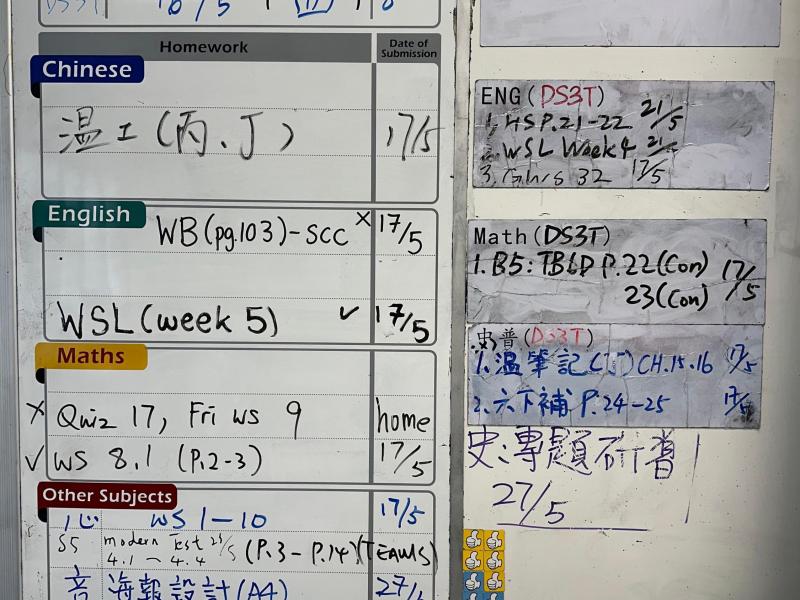 Homework
Date of Submission
Chinese
温工(丙、丁) 17/5
English
WB(pg.103)-SCC × 17/5
WSL(week 5) ✓ 17/5
Maths
× Quiz 17, Fri WS 9 home
✓ WS 8.1 (P.2-3) 17/5
Other Subjects
心 WS 1-10 17/5
modern Test
4.1 ~ 4.4 (P.3-P.14)(TEAMS)
音 海報設計(A4)
ENG(DS3T)
1. HSP.21-22 21/5
2. WSL Week4 21/5
3. 32 17/5
Math(DS3T)
1.B5: P.22(Con) 17/5
23(Con)
史普(DS3T)
1.温筆記(丁)CH.15.16 17/5
2.六下補 P.24-25 17/5
史:專題研習
27/5